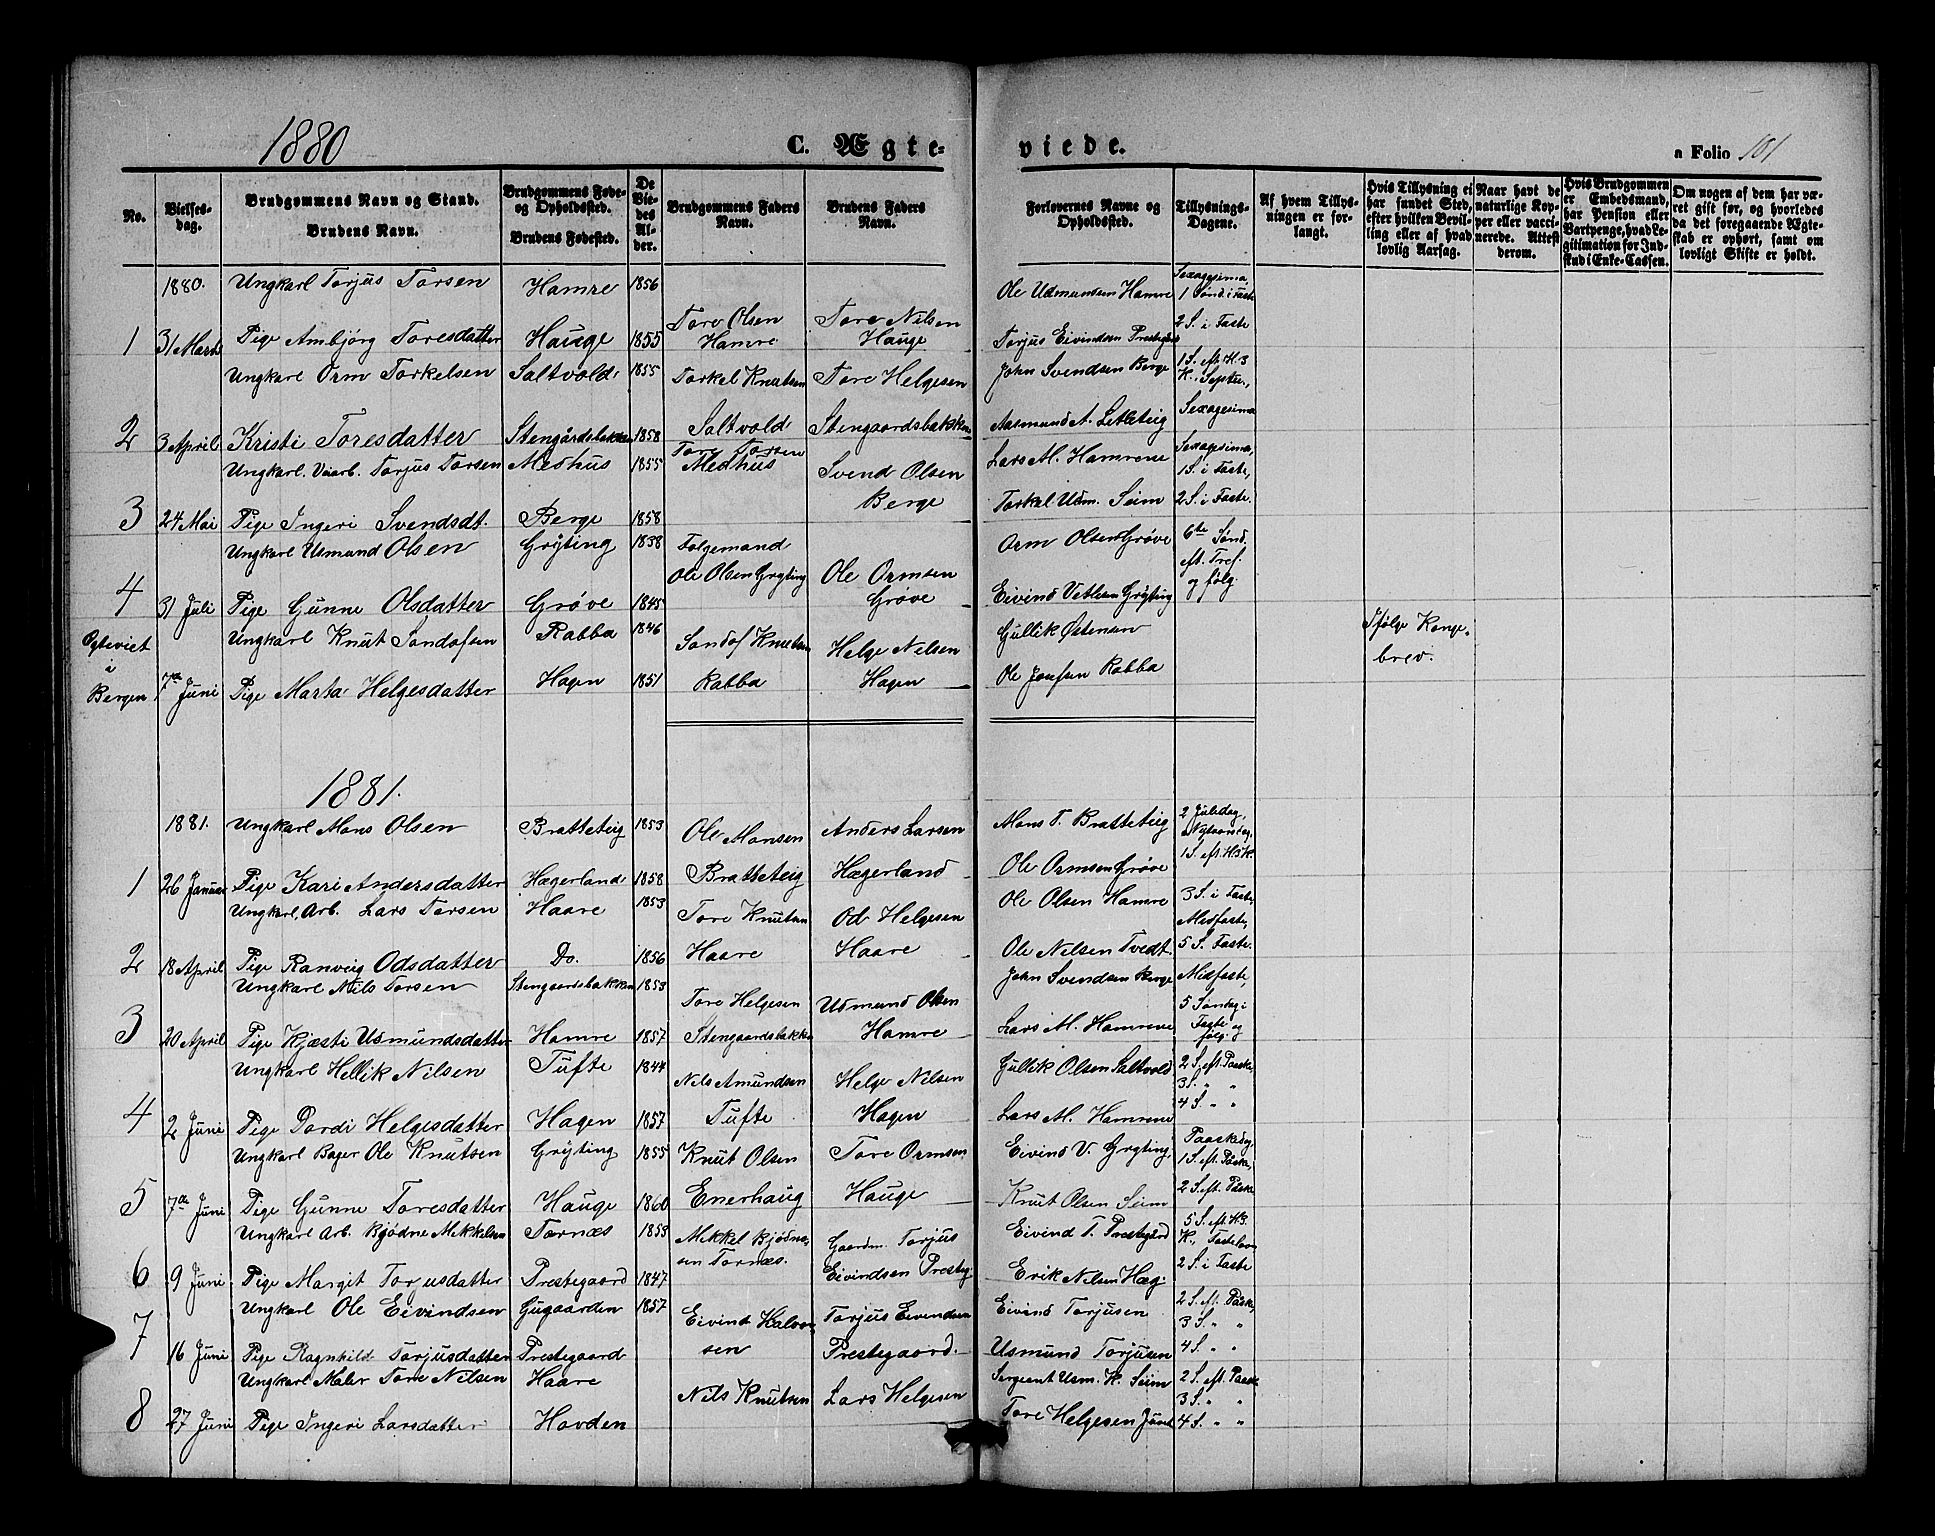 1880
C. Ægte-
viede.
a Folio 101
No.
Vielses-
dag.
Brudgommens Navn og Stand.
Brudens Navn.
Brudgommens Føde-
og Opholdssted.
Brudens Fødested.
De
Vie-
des
Al-
der.
Brudgommens Faders
Navn.
Brudens Faders
Navn.
Forlovernes Navne og
Opholdssted.
Tillysnings-
Dagene.
Af hvem Tillys-
ningen er for-
langt.
Hvis Tillysning ei
har fundet Sted,
efter hvilken Bevil-
ling eller af hvad
lovlig Aarsag.
Naar havt de
naturlige Kop-
per eller vacci-
nerede. Attest
derom.
Hvis Brudgommen
er Embedsmand,
har Pension eller
Vartpenge, hvad Le-
gitimation for Ind-
skud i Enke-Cassen.
Om nogen af dem har væ-
ret gift før, og hvorledes
da det foregaaende Ægte-
skab er ophørt, samt om
lovligt Skifte er holdt.
1880. Ungkarl Torjus Torsen Hamre 1856 Ole Udmundsen Hamre Sexagesima
1 Sønd. i Faste
Tore Olsen Tore Nilsen 2 S. i Faste
1 31 Marts Pige Ambjørg Toresdatter Hauge 1855 Hamre Hauge Torjus Eivindsen Prestegård
Ungkarl Orm Torkelsen Saltvold 1855 Torkel Knutsen Tore Helgesen John Svendsen Berge 1 S. eft. H. 3
K., Septu.,
Saltvold Stengaardsbakken Aasmund A. Letleteig Sexagesima
2 3 April Kristi Toresdatter Stengårdsbakken 1858 Tore Torsen
Ungkarl. Vaarb. Torjus Torsen Medhus 1855 Medhus Svend Olsen Lars M. Hamrene Sexagesima,
1 S. i Faste,
Berge Torkel Udm. Seim 2 S. i Faste.
3 24 Mai Pige Ingeri Svendsdt. Berge 1858
Ungkarl Usmund Olsen Grÿting 1838 Folgemand Orm Olsen Grøve 6te Sønd.
eft. Tref.
Ole Olsen Grÿting Ole Ormsen og følg.
4 31 Juli Pige Gunne Olsdatter Grøve 1845 Grøve Eivind Vetlesen Grÿting
Egteviet Ungkarl Knut Sondofsen Rabba 1846 Sondof Knutsen Helge Nilsen Gullik Østensen Ifølge Konge-
i brev.
Bergen 7de Juni Pige Marta Helgesdatter Hagen 1851 Rabba Hagen Ole Josefsen Rabba
1881.
1881. Ungkarl Mons Olsen Bratteteig 1853 Ole Monsen Anders Larsen Mons T. Bratteteig 2 Juledag,
Nytaarsdag,
1 S. eft. H. 3 K.
1 26 Januar Pige Kari Andersdatter Hægerland 1858 Bratteteig Hægerland Ole Ormsen Grøve
Ungkarl, Arb. Lars Torsen Haare 1853 Tore Knutsen Od Helgesen Ole Olsen Hamre 3 S. i Faste,
Midfaste,
2 18 April Pige Ranveig Odsdatter Do. 1856 Haare Haare Ole Nilsen Tvedt. 5 S. Faste.
Ungkarl Nils Torsen Stengaardsbakken 1853 Tore Helgesen Usmund Olsen John Svendsen Berge Midfaste,
5 Søndag i
3 20 April Pige Kjæsti Usmundsdatter Hamre 1857 Stengaardsbakken Hamre Lars M. Hamrene Faste og
følg.
Ungkarl Hellik Nilsen Tufte 1844 Nils Amundsen Helge Nilsen Gullik Olsen Saltvold 2 S. eft. Paaske,
3 S. " "
4 2 Juni Pige Dordi Helgesdatter Hagen 1857 Tufte Hagen Lars M. Hamrene 4 S. " "
Ungkarl Bager Ole Knutsen Grÿting 1855 Knut Olsen Tore Ormsen Eivind V. Grÿting, Paaskedag
1 S. eft. Påske,
5 7de Juni Pige Gunne Toresdatter Hauge 1860 Enerhaug Hauge Knut Olsen Seim 2 S. eft. Påske
Ungkarl Arb. Bjødne Mikkelsen Tornæs 1853 Mikkel Bjødne- Gaardm. Torjus Eivind T. Prestegård 5 S. eft. H. 3.
K., Fastelavn
6 9 Juni Pige Margit Torjusdatter Prestegaard 1847 sen Tornæs. Eivindsen Presteg. Erik Nilsen Hæg. 2 S. i Faste
Ungkarl Ole Eivindsen Gugaarden 1857 Eivind Halvor- Torjus Eivindsen Eivind Torjusen 2 S. eft. Påske,
3 S. " "
7 16 Juni Pige Ragnhild Torjusdatter Prestegaard sen Prestegaard. Usmund Torjusen 4 S. " "
Ungkarl Maler Tore Nilsen Haare Nils Knutsen Lars Helgesen Sergeant Usm. K. Seim 2 S. eft. Paaske
3 S. " "
8 27 Juni Pige Ingeri Larsdatter Hovden Tore Helgesen 4 S. " "